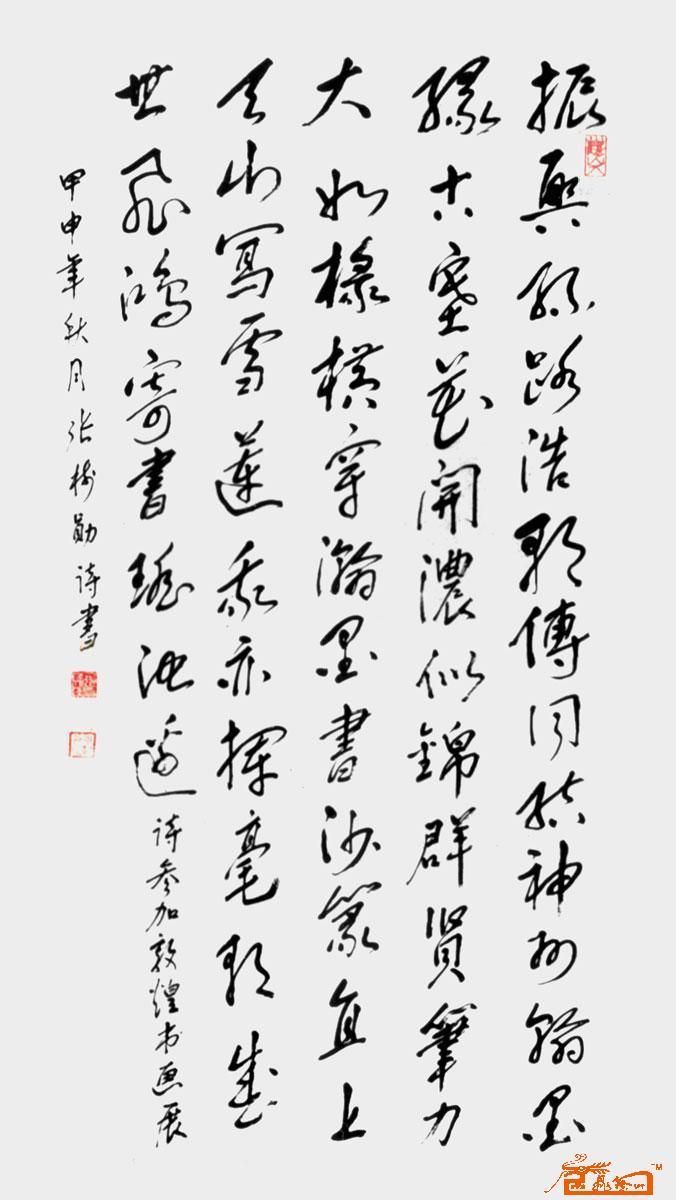 振興絲路浩歌傳同結神州翰墨
緣古塞花開濃似錦群賢筆力
大如椽橫穿瀚墨書沙篆直上
天山寫雪蓮我亦揮毫歌盛
世飛鴻寄書瑤池邊诗参加敦煌书画展
甲申年秋月张树勋诗書